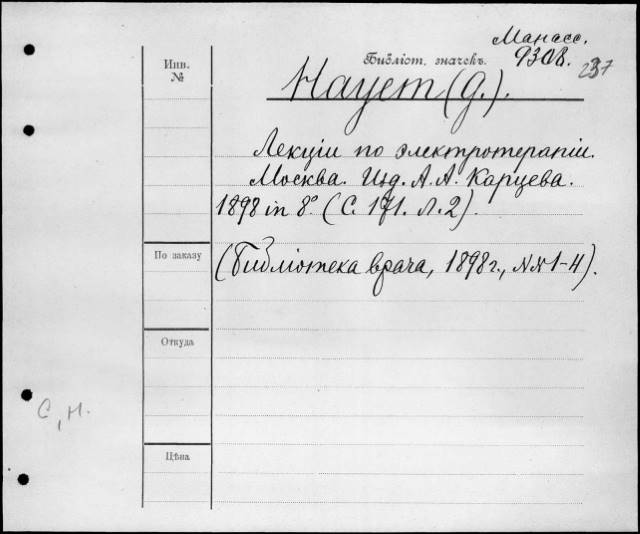 Манасс.
Инв.
№
Библіот. значекъ.
930В.
237
Наует (д.).
Лекціи по электротерапіи.
Москва. Изд. А. А. Карцева.
1898 in 8°. (С. 171. Л. 2).
По заказу
(Библіотека врача, 1898 г., №№ 1-4).
Откуда
С, Н.
Цѣна